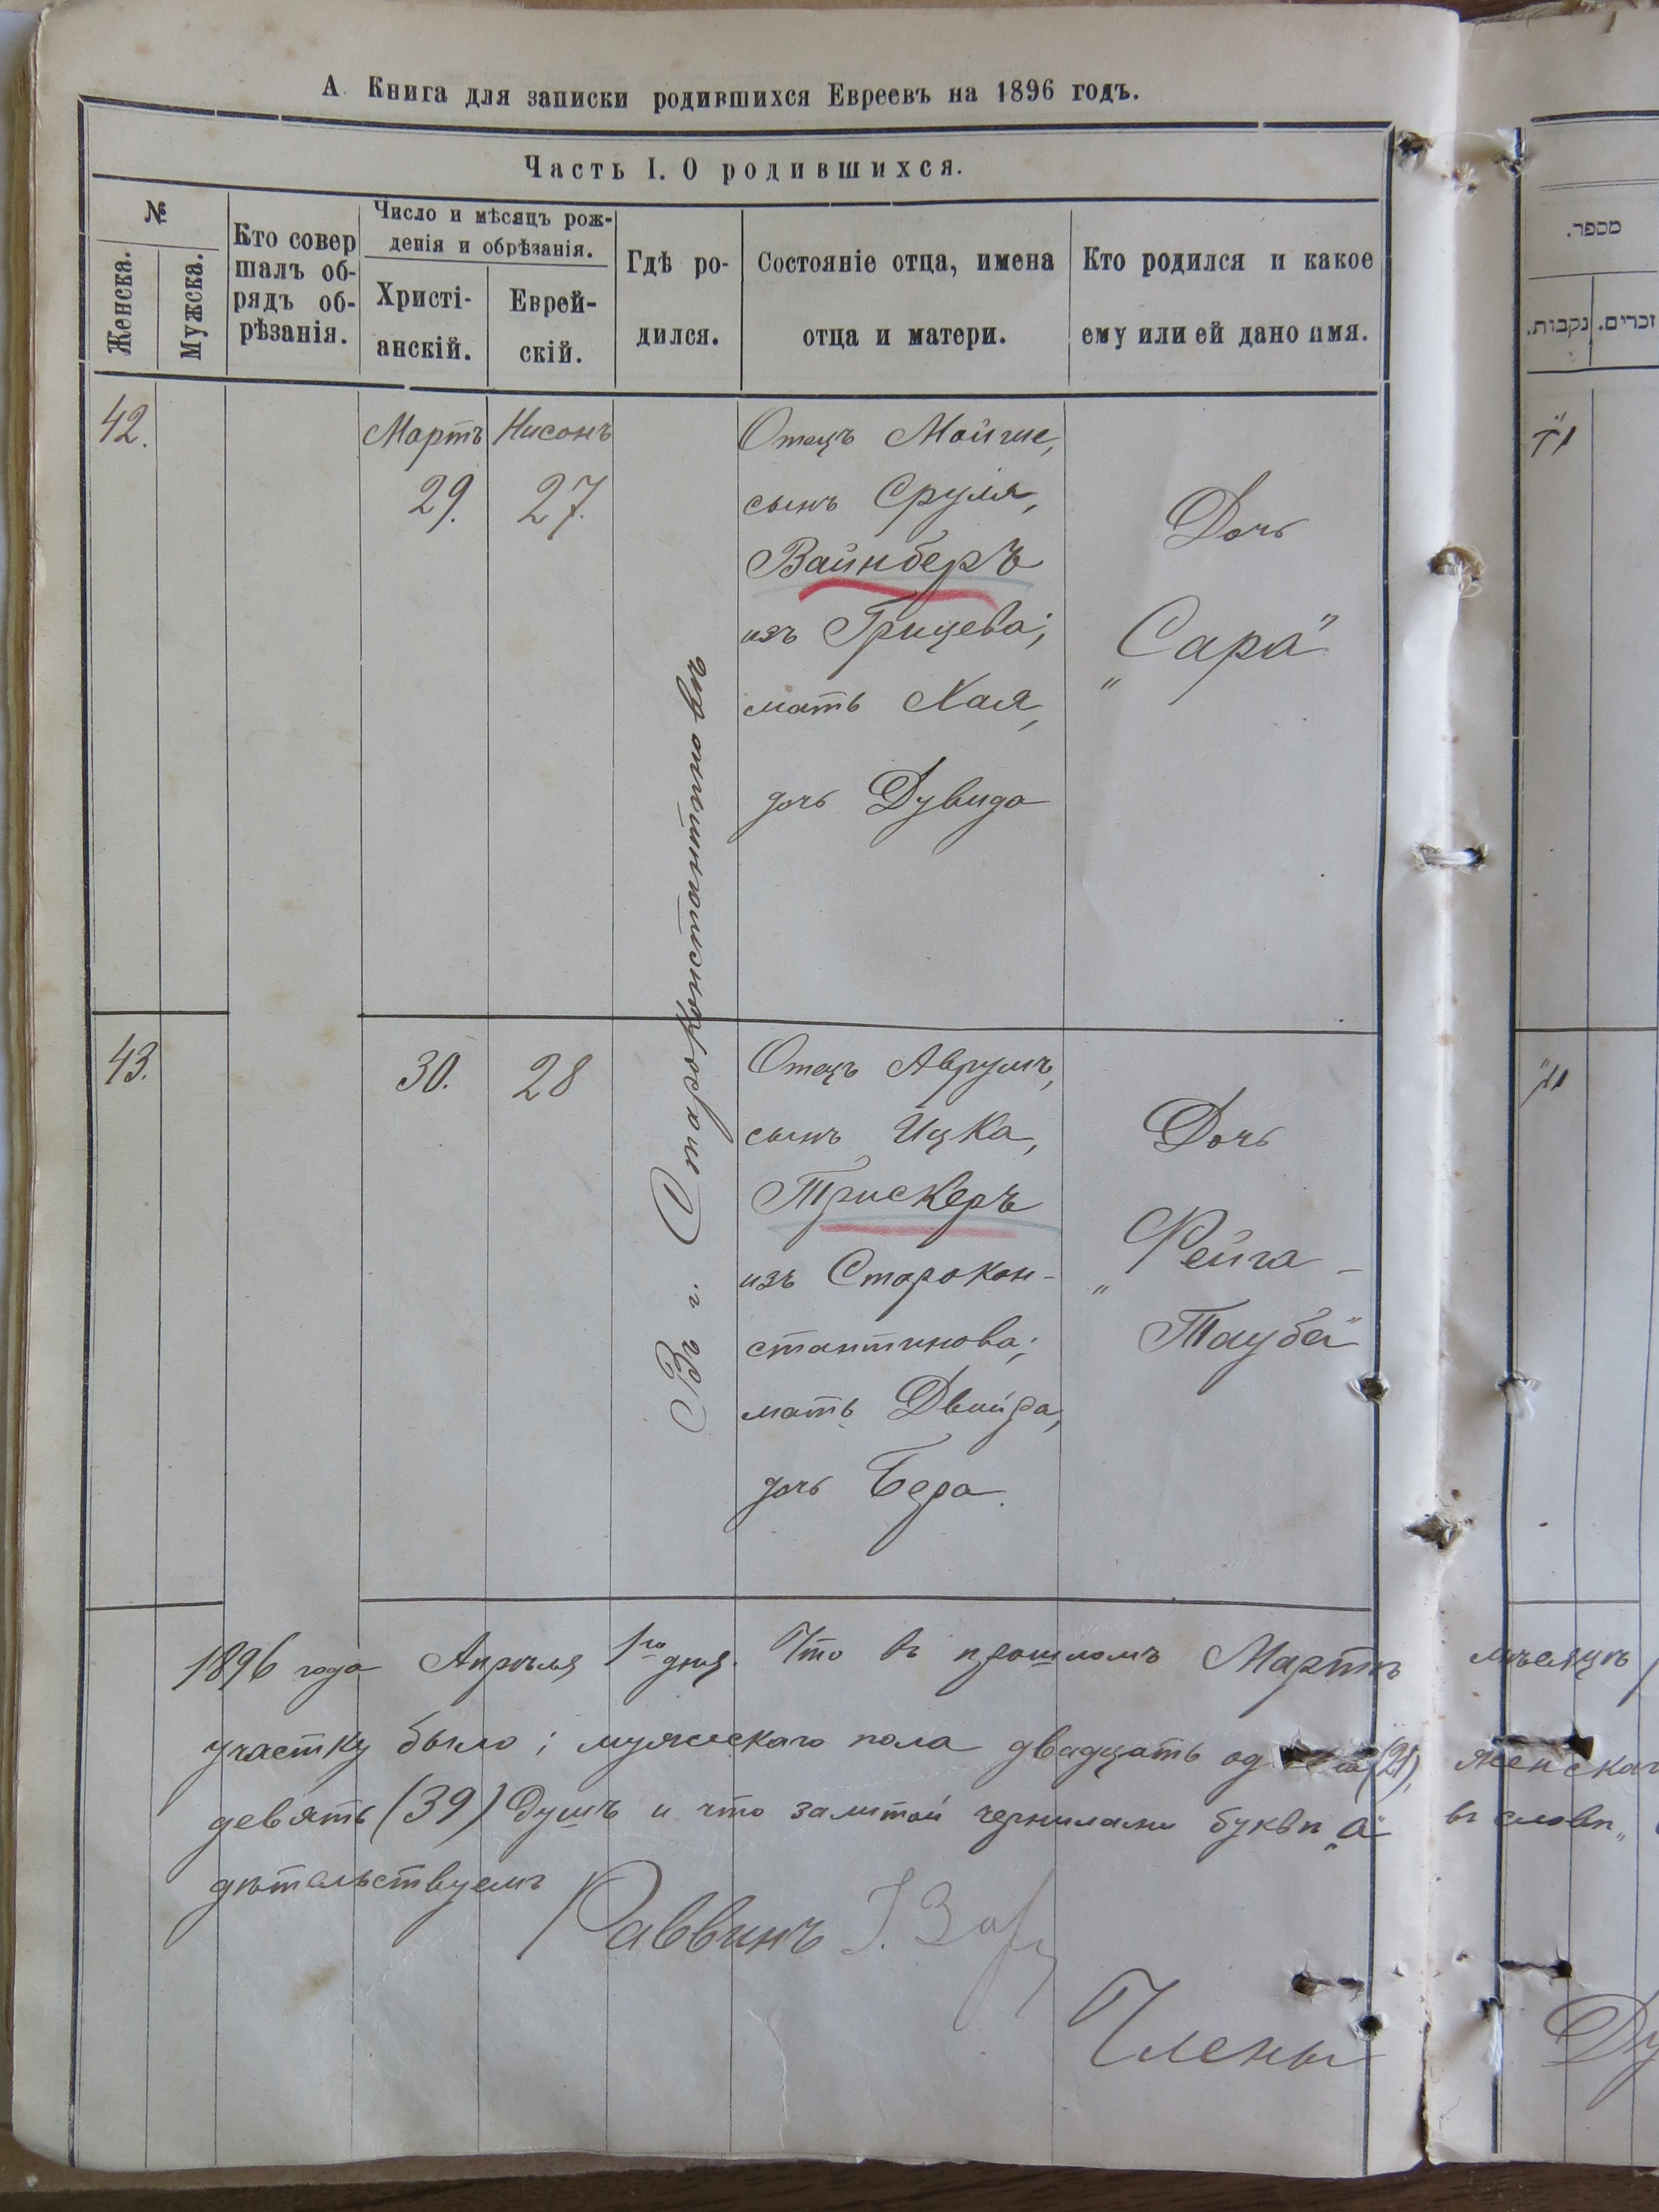 А. Книга для записки родившихся Евреевъ на 1896 годъ.
Часть I. О родившихся.
№
Женска.
Мужска.
Кто совер
шалъ об-
рядъ об-
рѣзанія.
Число и мѣсяцъ рож-
денія и обрѣзанія.
Христі-
анскій.
Еврей-
скій.
Гдѣ ро-
дился.
Состояніе отца, имена
отца и матери.
Кто родился и какое
ему или ей дано имя.
42.
Мартъ
29.
Нисонъ
27.
Въ г. Староконстантиновѣ
Отецъ Мойше,
сынъ Сруля,
Вайнберъ
изъ Грицева;
мать Хая,
дочь Дувида
Дочь
„Сара"
43.
30.
28
Отецъ Аврумъ,
сынъ Ицка,
Трискеръ
изъ Старокон-
стантинова;
мать Двойра,
дочь Бера.
Дочь
„Фейга-
Тауба"
1896 года Апрѣля 1го дня. Что въ прошломъ Мартѣ мѣсяцѣ
участку было; мужескаго пола двадцать од (21), женскаг
девять (39) душъ и что залитой чернилами буквѣ „а" въ словѣ „
дѣтельствуемъ
Раввинъ
Члены
מספר.
נקבות.
זכרים.